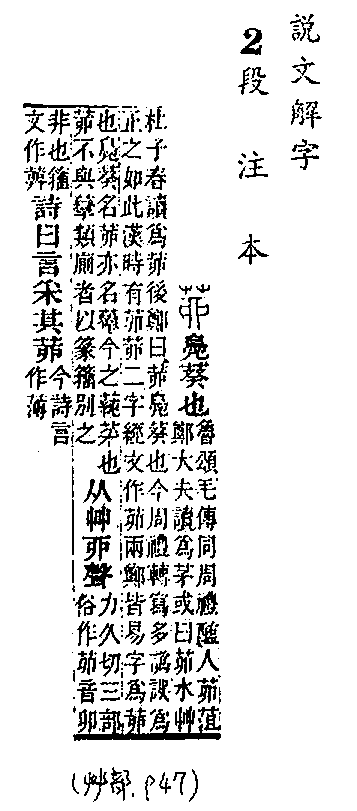 說文解字
2段注本
茆鳧葵也
魯頌毛傳同周禮醢人茆菹
鄭大夫讀爲茅或曰茆水艸
杜子春讀爲茆後鄭曰茆鳧葵也今周禮轉寫多譌誤爲
正之如此漢時有茆茆二字經文作茆兩鄭皆易字爲茆
也鳧葵名茆亦名今之也
茆不與類廁者以篆籒別之
从艸丣聲
力久切三部
俗作茆音卯
非也籒
文作
詩曰言采其茆
今詩言
作薄
(艸部.P47)